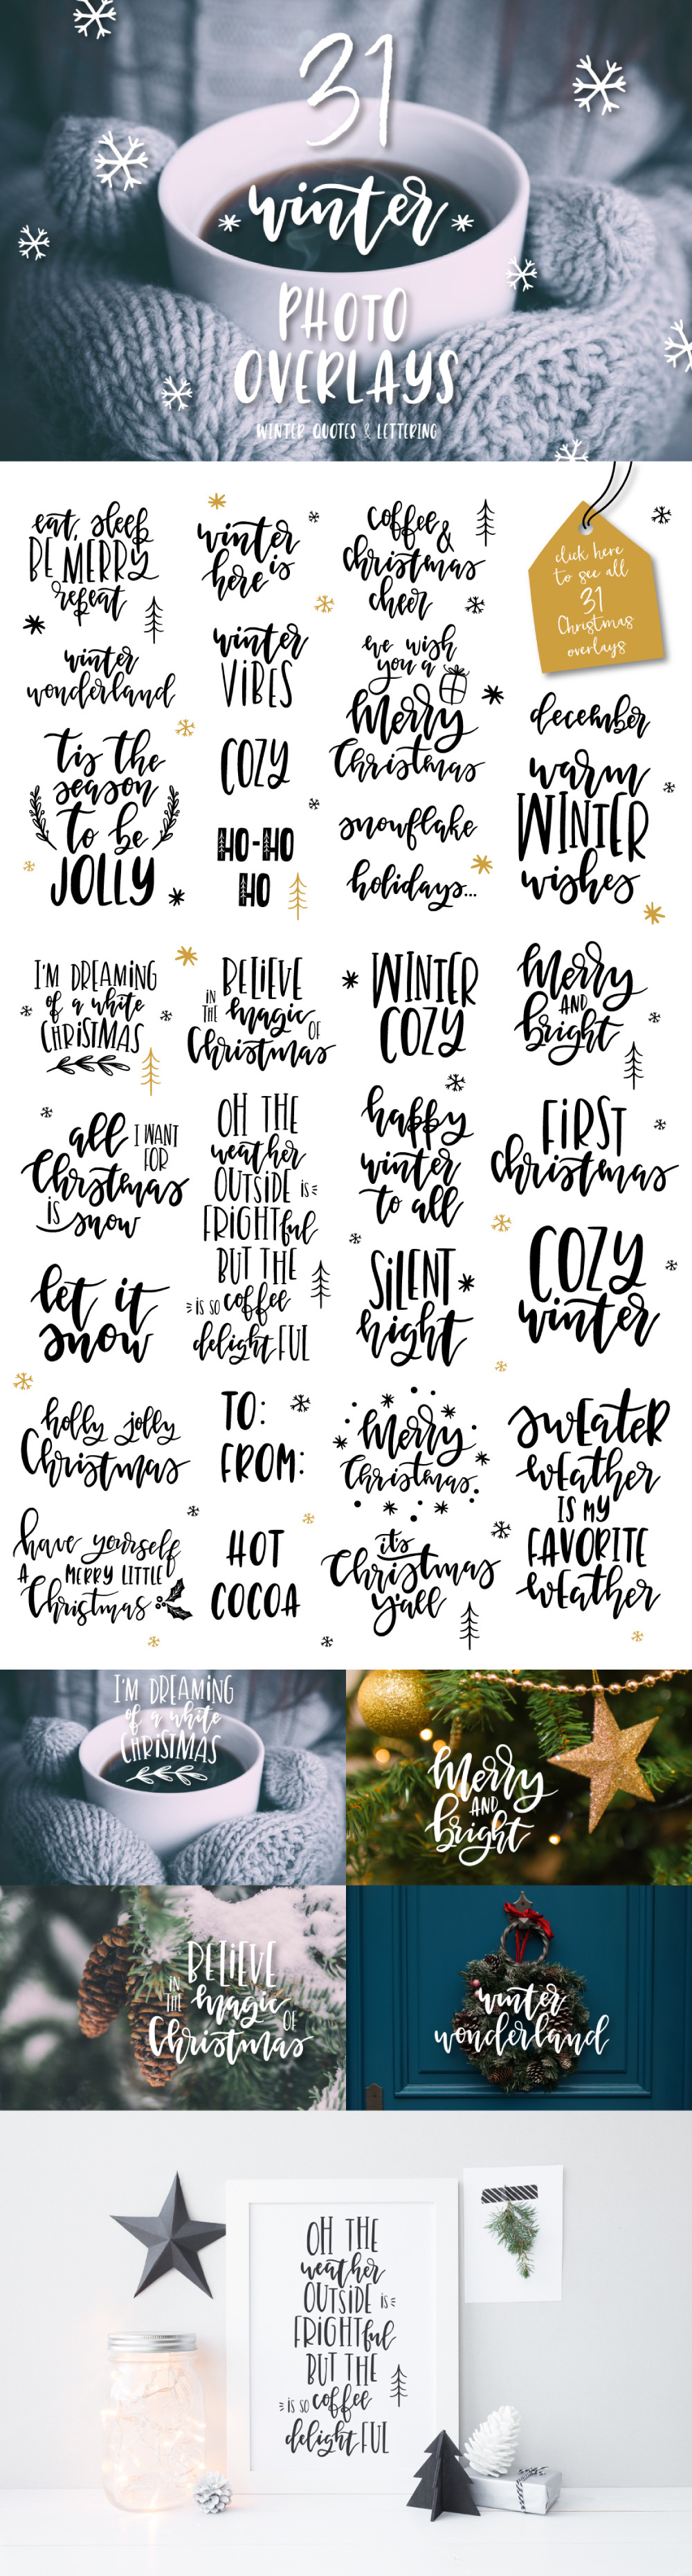 31
winter
PHOTO
OVERLAYS
WINTER QUOTES & LETTERING
eat, sleep
BE MERRY
repeat
winter
here is
coffee &
christmas
cheer
click here
to see all
31
Christmas
overlays
winter
wonderland
winter
VIBES
we wish
you a
Merry
Christmas
december
tis the
season
to be
JOLLY
COZY
HO-HO
HO
snowflake
holidays...
warm
WINTER
wishes
I'M DREAMING
of a white
CHRISTMAS
BELIEVE
IN THE magic OF
Christmas
WINTER
COZY
Merry
AND
bright
all I WANT
FOR
Christmas
is snow
OH THE
weather
OUTSIDE is
FRIGHTful
BUT THE
is so coffee
delightFUL
happy
winter
to all
FIRST
christmas
let it
snow
SILENT
night
COZY
winter
holly jolly
Christmas
TO:
FROM:
Merry
Christmas
SWEATER
WEather
IS MY
FAVORITE
WEather
have yourself
A MERRY LITTLE
Christmas
HOT
COCOA
it's
Christmas
y'all
I'M DREAMING
of a white
CHRISTMAS
Merry
AND
bright
BELIEVE
IN THE magic OF
Christmas
winter
wonderland
OH THE
weather
OUTSIDE is
FRIGHTful
BUT THE
is so coffee
delightFUL